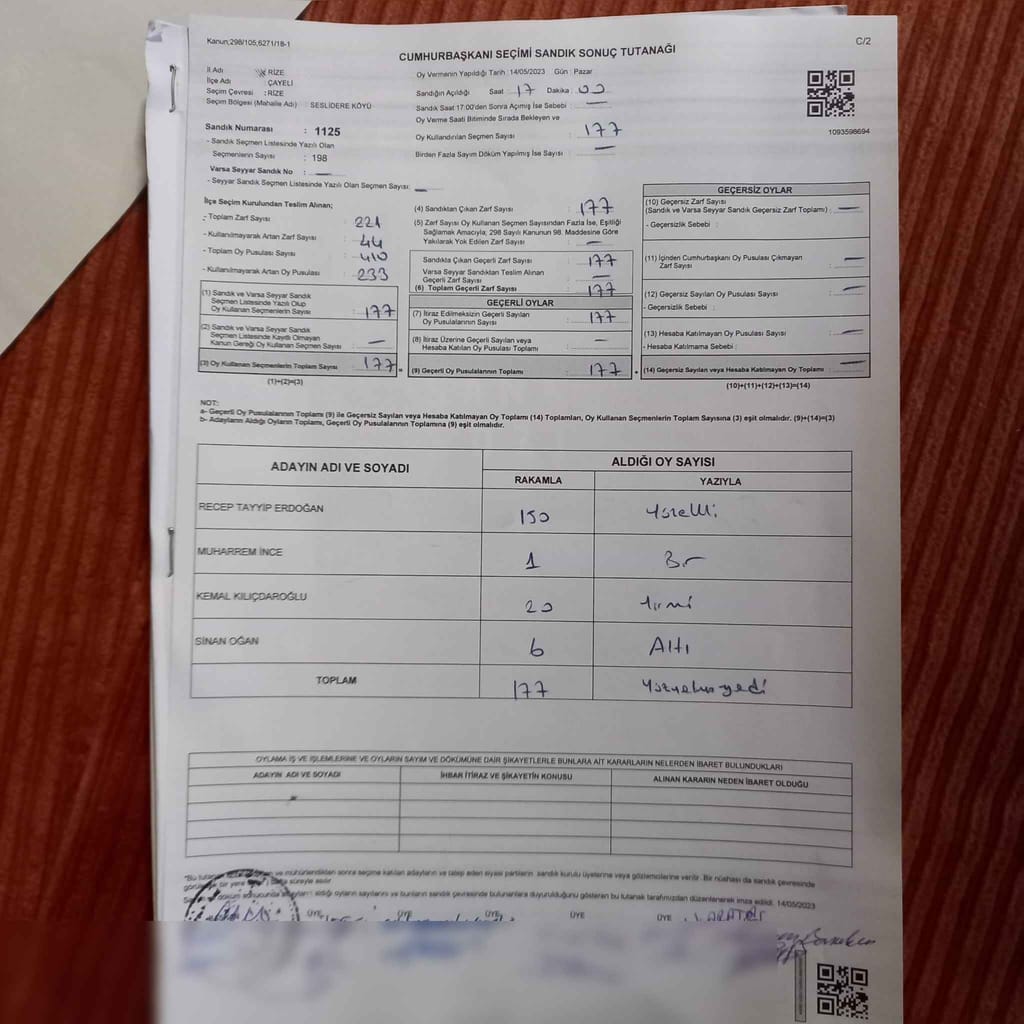 Kanun;298/105,6271/18-1
C/2
CUMHURBAŞKANI SEÇİMİ SANDIK SONUÇ TUTANAĞI
İl Adı : RİZE
İlçe Adı : ÇAYELİ
Seçim Çevresi : RİZE
Seçim Bölgesi (Mahalle Adı) : SESLİDERE KÖYÜ
Sandık Numarası : 1125
- Sandık Seçmen Listesinde Yazılı Olan
Seçmenlerin Sayısı : 198
Varsa Seyyar Sandık No : —
- Seyyar Sandık Seçmen Listesinde Yazılı Olan Seçmen Sayısı: —
Oy Vermenin Yapıldığı Tarih :14/05/2023 Gün : Pazar
Sandığın Açıldığı Saat : 17 Dakika : 00
Sandık Saat 17:00'den Sonra Açımış İse Sebebi : —
Oy Verme Saati Bitiminde Sırada Bekleyen ve
Oy Kullandırılan Seçmen Sayısı : 177
Birden Fazla Sayım Döküm Yapılmış İse Sayısı : —
1093598694
İlçe Seçim Kurulundan Teslim Alınan;
- Toplam Zarf Sayısı : 221
- Kullanılmayarak Artan Zarf Sayısı : 44
- Toplam Oy Pusulası Sayısı : 410
- Kullanılmayarak Artan Oy Pusulası : 233
(1) Sandık ve Varsa Seyyar Sandık
Seçmen Listesinde Yazılı Olup
Oy Kullanan Seçmenlerin Sayısı : 177
(2) Sandık ve Varsa Seyyar Sandık
Seçmen Listesinde Kayıtlı Olmayan
Kanun Gereği Oy Kullanan Seçmen Sayısı : —
(3) Oy Kullanan Seçmenlerin Toplam Sayısı : 177 =
(1)+(2)=(3)
(4) Sandıktan Çıkan Zarf Sayısı : 177
(5) Zarf Sayısı Oy Kullanan Seçmen Sayısından Fazla İse, Eşitliği
Sağlamak Amacıyla; 298 Sayılı Kanunun 98. Maddesine Göre
Yakılarak Yok Edilen Zarf Sayısı : —
Sandıkta Çıkan Geçerli Zarf Sayısı : 177
Varsa Seyyar Sandıktan Teslim Alınan
Geçerli Zarf Sayısı : —
(6) Toplam Geçerli Zarf Sayısı : 177
GEÇERLİ OYLAR
(7) İtiraz Edilmeksizin Geçerli Sayılan
Oy Pusulalarının Sayısı : 177
(8) İtiraz Üzerine Geçerli Sayılan veya
Hesaba Katılan Oy Pusulası Toplamı : —
(9) Geçerli Oy Pusulalarının Toplamı : 177 +
GEÇERSİZ OYLAR
(10) Geçersiz Zarf Sayısı
(Sandık ve Varsa Seyyar Sandık Geçersiz Zarf Toplamı) : —
- Geçersizlik Sebebi :
(11) İçinden Cumhurbaşkanı Oy Pusulası Çıkmayan
Zarf Sayısı : —
(12) Geçersiz Sayılan Oy Pusulası Sayısı : —
- Geçersizlik Sebebi :
(13) Hesaba Katılmayan Oy Pusulası Sayısı : —
- Hesaba Katılmama Sebebi :
(14) Geçersiz Sayılan veya Hesaba Katılmayan Oy Toplamı : —
(10)+(11)+(12)+(13)=(14)
NOT:
a- Geçerli Oy Pusulalarının Toplamı (9) ile Geçersiz Sayılan veya Hesaba Katılmayan Oy Toplamı (14) Toplamları, Oy Kullanan Seçmenlerin Toplam Sayısına (3) eşit olmalıdır. (9)+(14)=(3)
b- Adayların Aldığı Oyların Toplamı, Geçerli Oy Pusulalarının Toplamına (9) eşit olmalıdır.
ADAYIN ADI VE SOYADI
ALDIĞI OY SAYISI
RAKAMLA YAZIYLA
RECEP TAYYİP ERDOĞAN 150 Yüzelli
MUHARREM İNCE 1 Bir
KEMAL KILIÇDAROĞLU 20 Yirmi
SİNAN OĞAN 6 Altı
TOPLAM 177
OYLAMA İŞ VE İŞLEMLERİNE VE OYLARIN SAYIM VE DÖKÜMÜNE DAİR ŞİKAYETLERLE BUNLARA AİT KARARLARIN NELERDEN İBARET BULUNDUKLARI
ADAYIN ADI VE SOYADI İHBAR İTİRAZ VE ŞİKAYETİN KONUSU ALINAN KARARIN NEDEN İBARET OLDUĞU
ve mühürlendikten sonra seçime katılan adayların ve talep eden siyasi partilerin sandık kurulu üyelerine veya gözlemcilerine verilir. Bir nüshası da sandık çevresinde
bir yere süreyle asılır
döküm sonucunda adayların aldığı oyların sayılarını ve bunların sandık çevresinde bulunanlara duyurulduğunu gösteren bu tutanak tarafımızdan düzenlenerek imza edildi. 14/05/2023
ÜYE ÜYE ÜYE ÜYE ÜYE